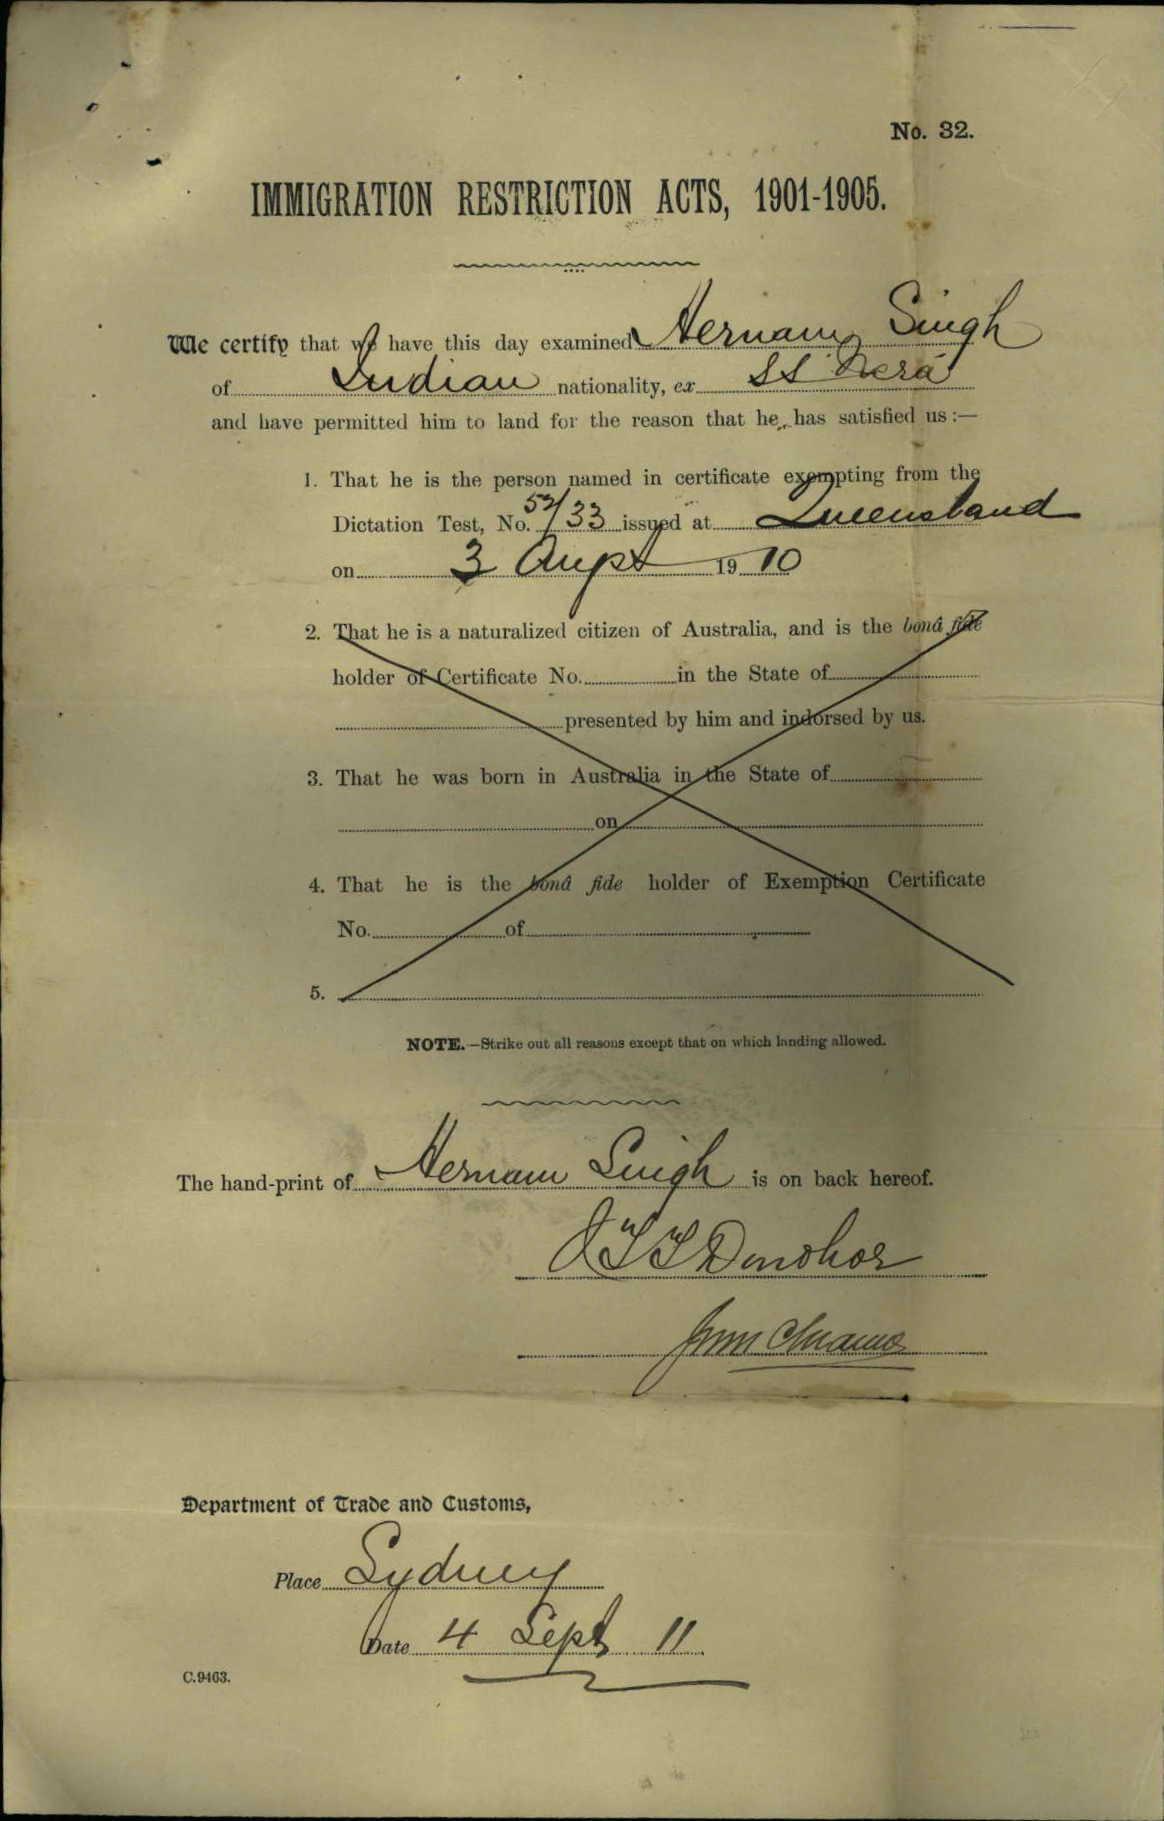 No. 32.
IMMIGRATION RESTRICTION ACTS, 1901-1905.
We certify that we have this day examined Hernam Singh
of Indian nationality, ex SS Nera
and have permitted him to land for the reason that he has satisfied us :—
1. That he is the person named in certificate exempting from the
Dictation Test, No. 52/33 issued at Queensland
on 3 Augst 1910
2. That he is a naturalized citizen of Australia, and is the bonâ fide
holder of Certificate No. in the State of
presented by him and indorsed by us.
3. That he was born in Australia in the State of
on
4. That he is the bonâ fide holder of Exemption Certificate
No. of
5.
NOTE.—Strike out all reasons except that on which landing allowed.
The hand-print of Hernam Singh is on back hereof.
J T T Donohoe
Department of Trade and Customs,
Place Sydney
Date 4 Sept 11
C.9463.